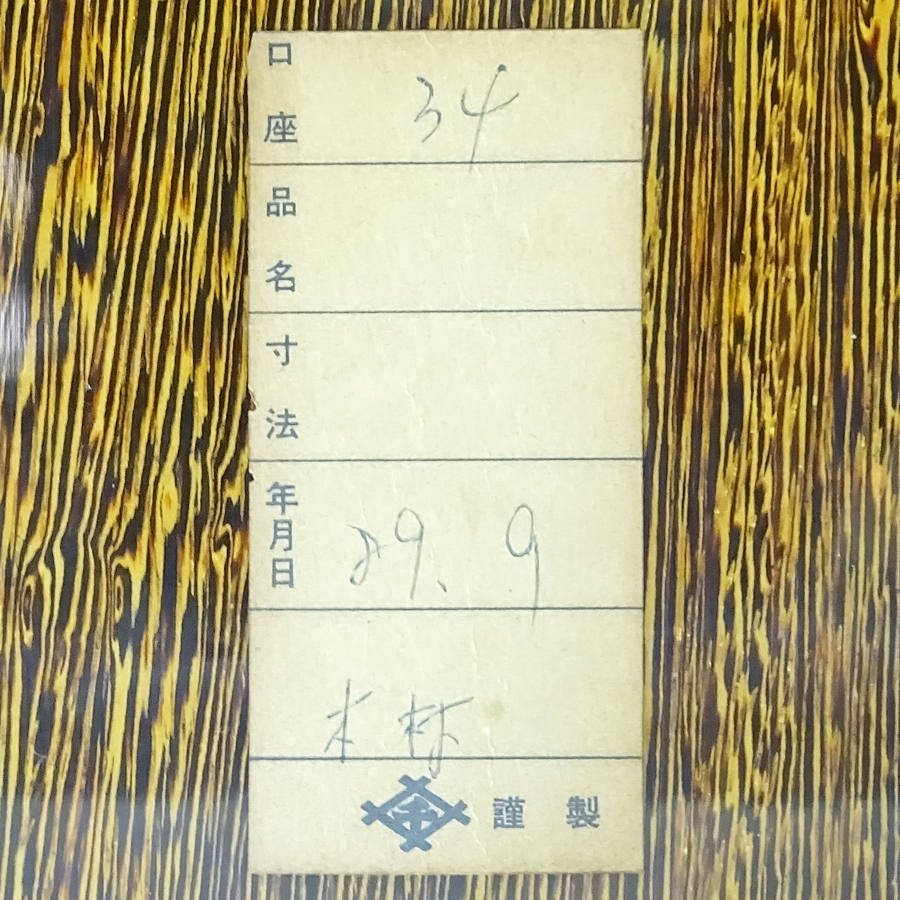 口座 34
品名
寸法
年月日 29. 9
木村
謹製